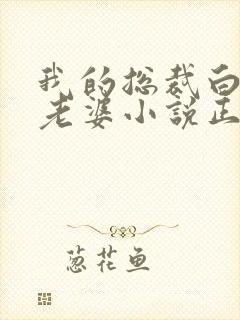 我的总裁白
老婆小說正
葱花鱼